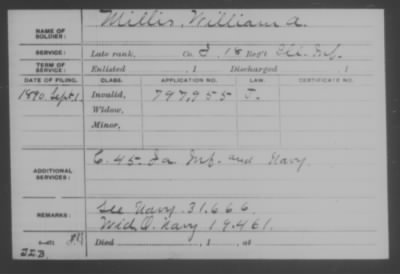 NAME OF SOLDIER: Millis, William A.
SERVICE: Late rank, Co. I, 18 Reg't Ill. Inf.
TERM OF SERVICE: Enlisted , 1 Discharged , 1
DATE OF FILING. CLASS. APPLICATION NO. LAW. CERTIFICATE NO.
1890, Sept 1. Invalid, 797,955 J.
Widow,
Minor,
ADDITIONAL SERVICES: C. 45 Ia. Inf. and Navy.
REMARKS: See Navy. 31.666.
Wid. O. Navy 19.461.
Died , 1 , at